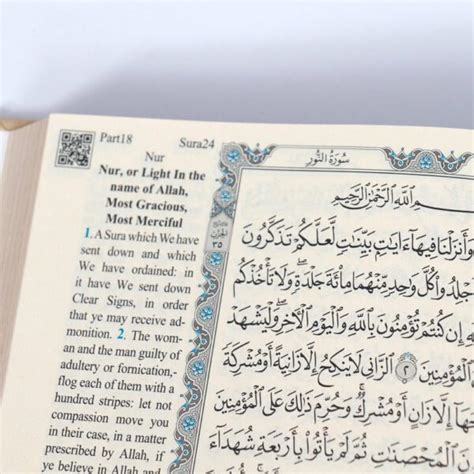 Part18 Sura24
Nur
Nur, or Light In the
name of Allah,
Most Gracious,
Most Merciful
1. A Sura which We have
sent down and which
We have ordained: in
it have We sent down
Clear Signs, in order
that ye may receive ad-
monition. 2. The wom-
an and the man guilty of
adultery or fornication,-
flog each of them with a
hundred stripes: let not
compassion move you
in their case, in a matter
prescribed by Allah, if
ye believe in Allah and
سُورَةُ النُّورِ
الحزب
٣٥
ٱللَّهِ ٱلرَّحْمَٰنِ ٱلرَّحِيمِ
وَأَنزَلْنَا فِيهَآ ءَايَٰتٍۭ بَيِّنَٰتٍ لَّعَلَّكُمْ تَذَكَّرُونَ
كُلَّ وَٰحِدٍ مِّنْهُمَا مِا۟ئَةَ جَلْدَةٍ ۖ وَلَا تَأْخُذْكُم
إِن كُنتُمْ تُؤْمِنُونَ بِٱللَّهِ وَٱلْيَوْمِ ٱلْءَاخِرِ ۖ وَلْيَشْهَدْ
ٱلْمُؤْمِنِينَ ٢ ٱلزَّانِى لَا يَنكِحُ إِلَّا زَانِيَةً أَوْ مُشْرِكَةً
إِلَّا زَانٍ أَوْ مُشْرِكٌ ۚ وَحُرِّمَ ذَٰلِكَ عَلَى ٱلْمُؤْمِنِينَ
ٱلْمُحْصَنَٰتِ ثُمَّ لَمْ يَأْتُوا۟ بِأَرْبَعَةِ شُهَدَآءَ